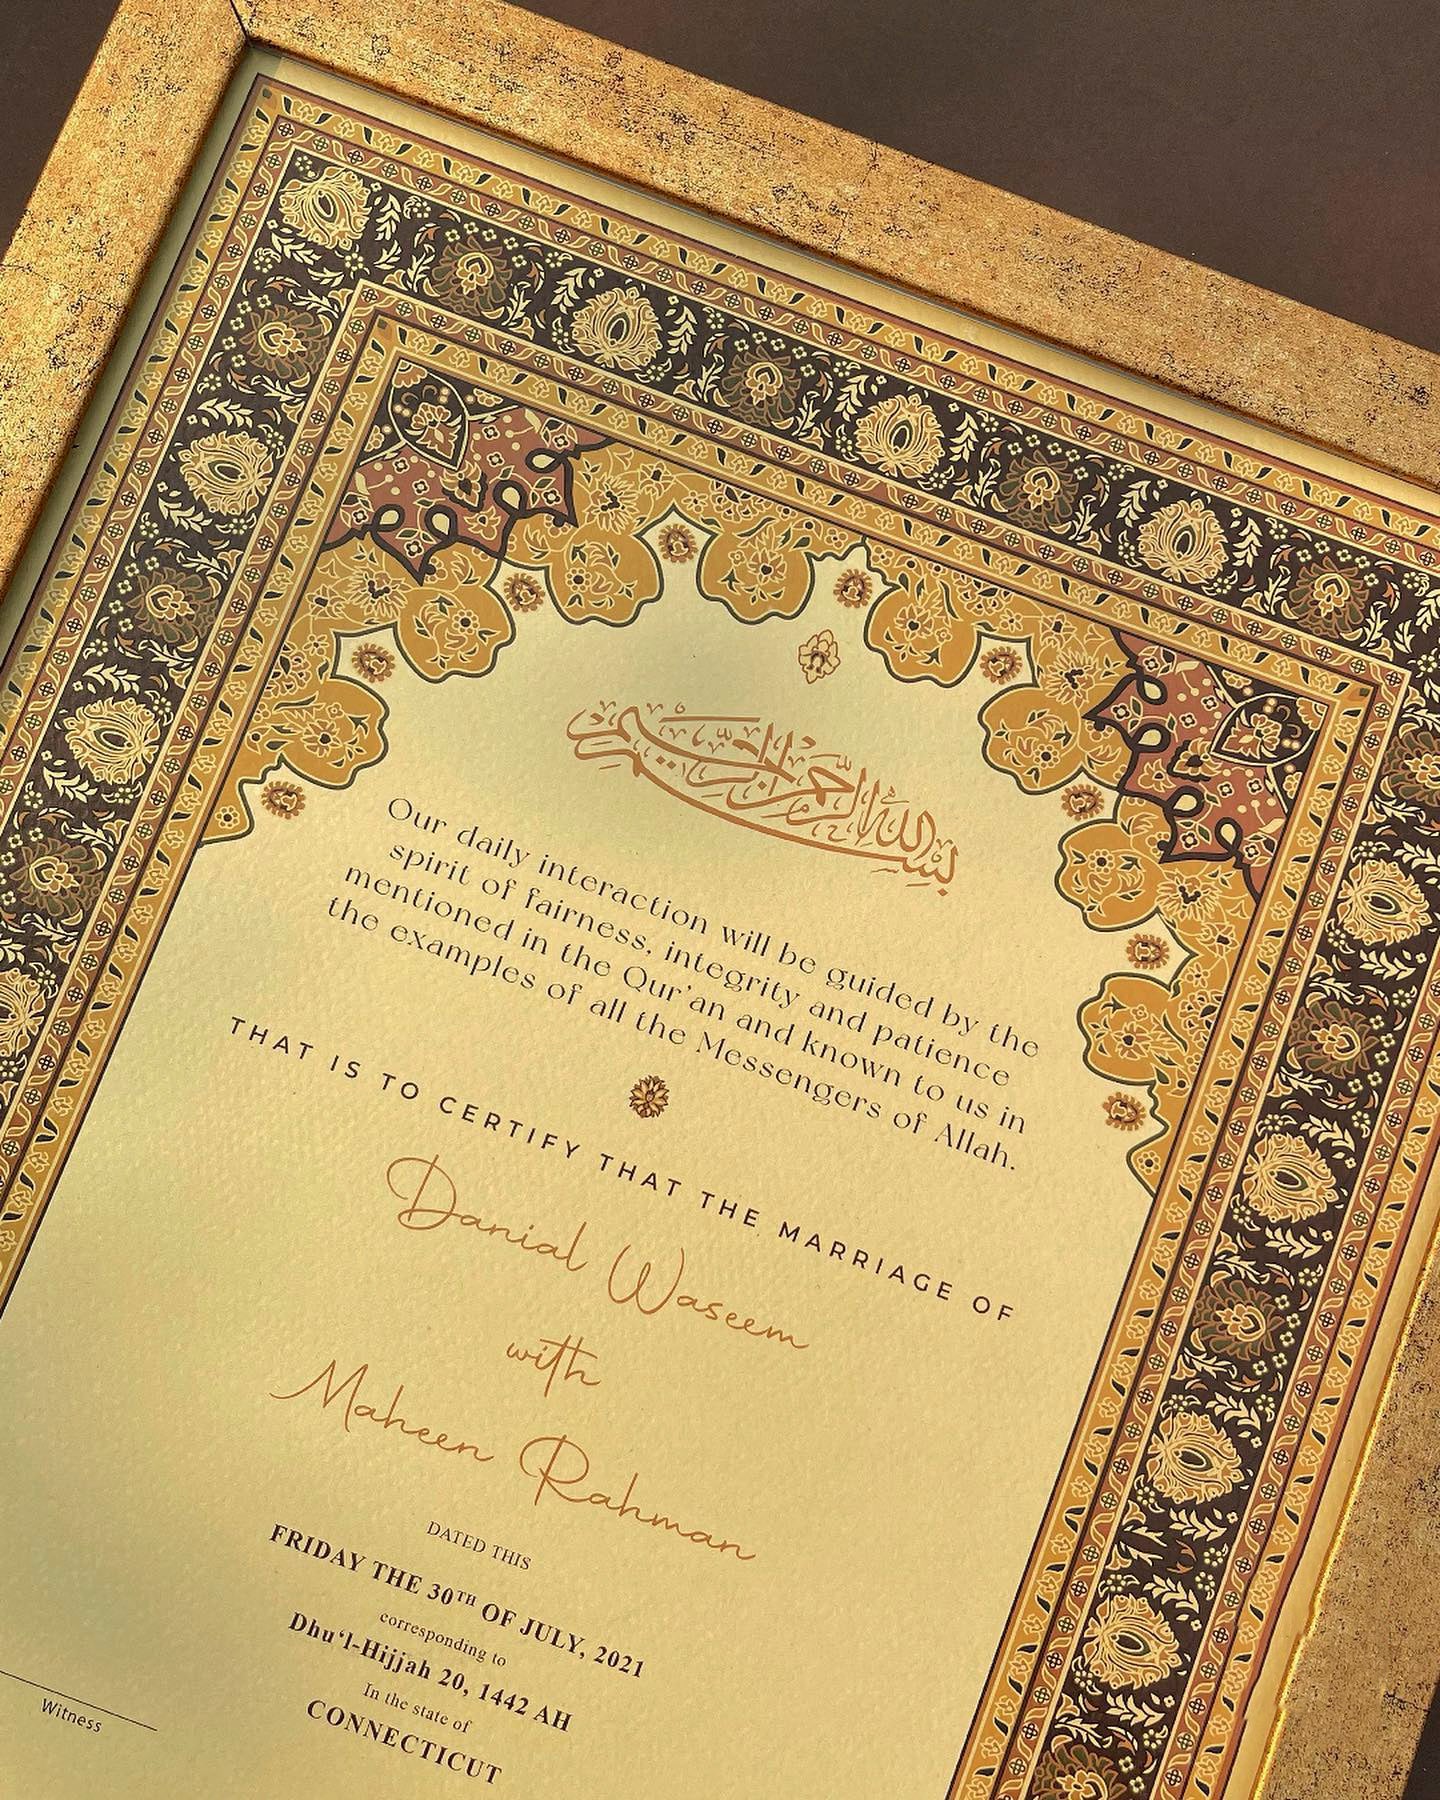 بسم الله الرحمن الرحيم
Our daily interaction will be guided by the
spirit of fairness, integrity and patience
mentioned in the Qur'an and known to us in
the examples of all the Messengers of Allah.
THAT IS TO CERTIFY THAT THE MARRIAGE OF
Danial Waseem
with
Maheen Rahman
DATED THIS
FRIDAY THE 30TH OF JULY, 2021
corresponding to
Dhu‘l-Hijjah 20, 1442 AH
In the state of
CONNECTICUT
Witness